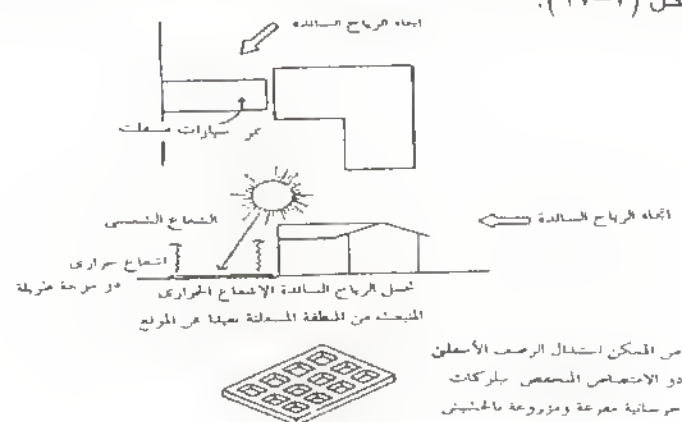 شكل (٢-١٧).
اتجاه الرياح السائدة
ممر سيارات مسفلت
الشعاع الشمسى
اتجاه الرياح السائدة
اشعاع حرارى
ذو موجة طويلة
تحمل الرياح السائدة الإشعاع الحرارى
المنبعث من المنطقة المسفلتة بعيدا عن الموقع
من الممكن استبدال الرصف الأسفلتى
ذو الامتصاص المنخفض ببلوكات
خرسانية مفرغة ومزروعة بالحشيش